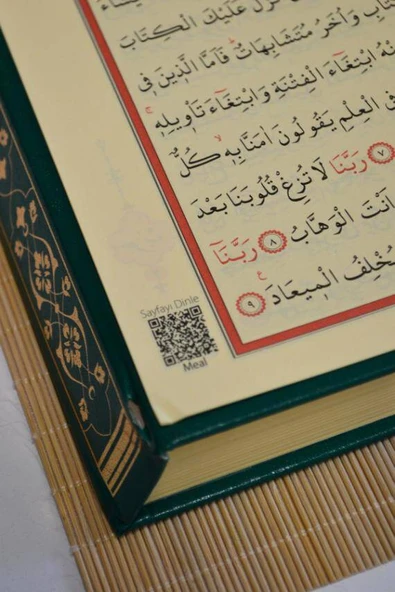 نَزَّلَ عَلَيْكَ الْكِتَابَ
وَاُخَرُ مُتَشَابِهَاتٌۜ فَاَمَّا الَّذ۪ينَ ف۪ي
ابْتِغَٓاءَ الْفِتْنَةِ وَابْتِغَٓاءَ تَأْو۪يلِه۪ۚ
الْعِلْمِ يَقُولُونَ اٰمَنَّا بِه۪ۙ كُلٌّ
٧ رَبَّنَا لَا تُزِغْ قُلُوبَنَا بَعْدَ
اَنْتَ الْوَهَّابُ ٨ رَبَّنَٓا
يُخْلِفُ الْم۪يعَادَ۟ ٩
Sayfayı Dinle
Meal